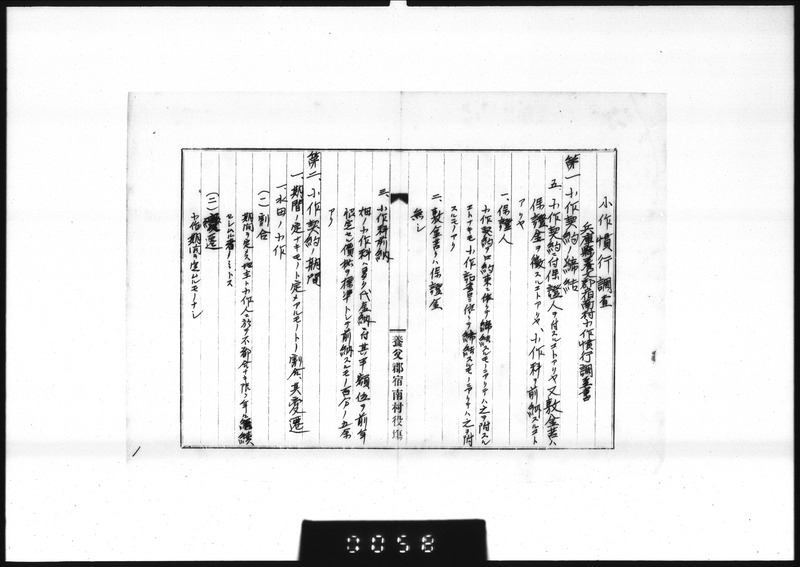 小作慣行調査
兵庫縣養父郡宿南村小作慣行調査書
第一、小作契約ノ締結
五、小作契約ニ付保證人ヲ付スルコトアリヤ又敷金若ハ
保證金ヲ徴スルコトアリヤ、小作料ヲ前納スルコト
アリヤ
一、保證人
小作契約ハ口約束ニ依リテ締結スルモノアリテハ之ヲ附スル
コトナキモ小作証書ニ依リテ締結スルモノアリテハ之ヲ附
スルモノアリ
二、敷金若クハ保證金
無シ
三、小作料前納
畑ノ小作料ハ多ク代金納ニ付其半額位ヲ前年
アリ
第二、小作契約ノ期間
一、期間ノ定ナキモノト定メアルモノトノ割合其変遷
一、水田ノ小作
(一)割合
期間ヲ定メス地主ト小作人ニ於テ不都合ナキ限リ年々継続
セラルル者ノミトス
(二)変遷
小作期間ヲ定ムルモノナシ
養父郡宿南村役場
0058